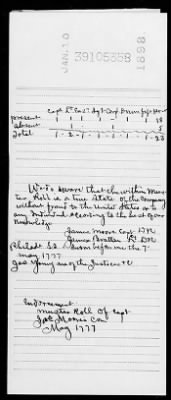 JAN. 10
39105358
1898
Capt Lt Ens Sgt Corp Drum fife
present 1 1 1 18
absent 1 1 5
Total 1 2 1 1 23
We do swear that the within Mus
ter Roll is a true State of the Company
without fraud to the United States or to
any Individual according to the best of our
Knowledge
James Moore Capt
James Lt
Philada SS Sworn before me the 7
may 1777
Geo Young one of the Justices &c
Endorsement
muster Roll of Capt
Jas Moores Com
May 1777